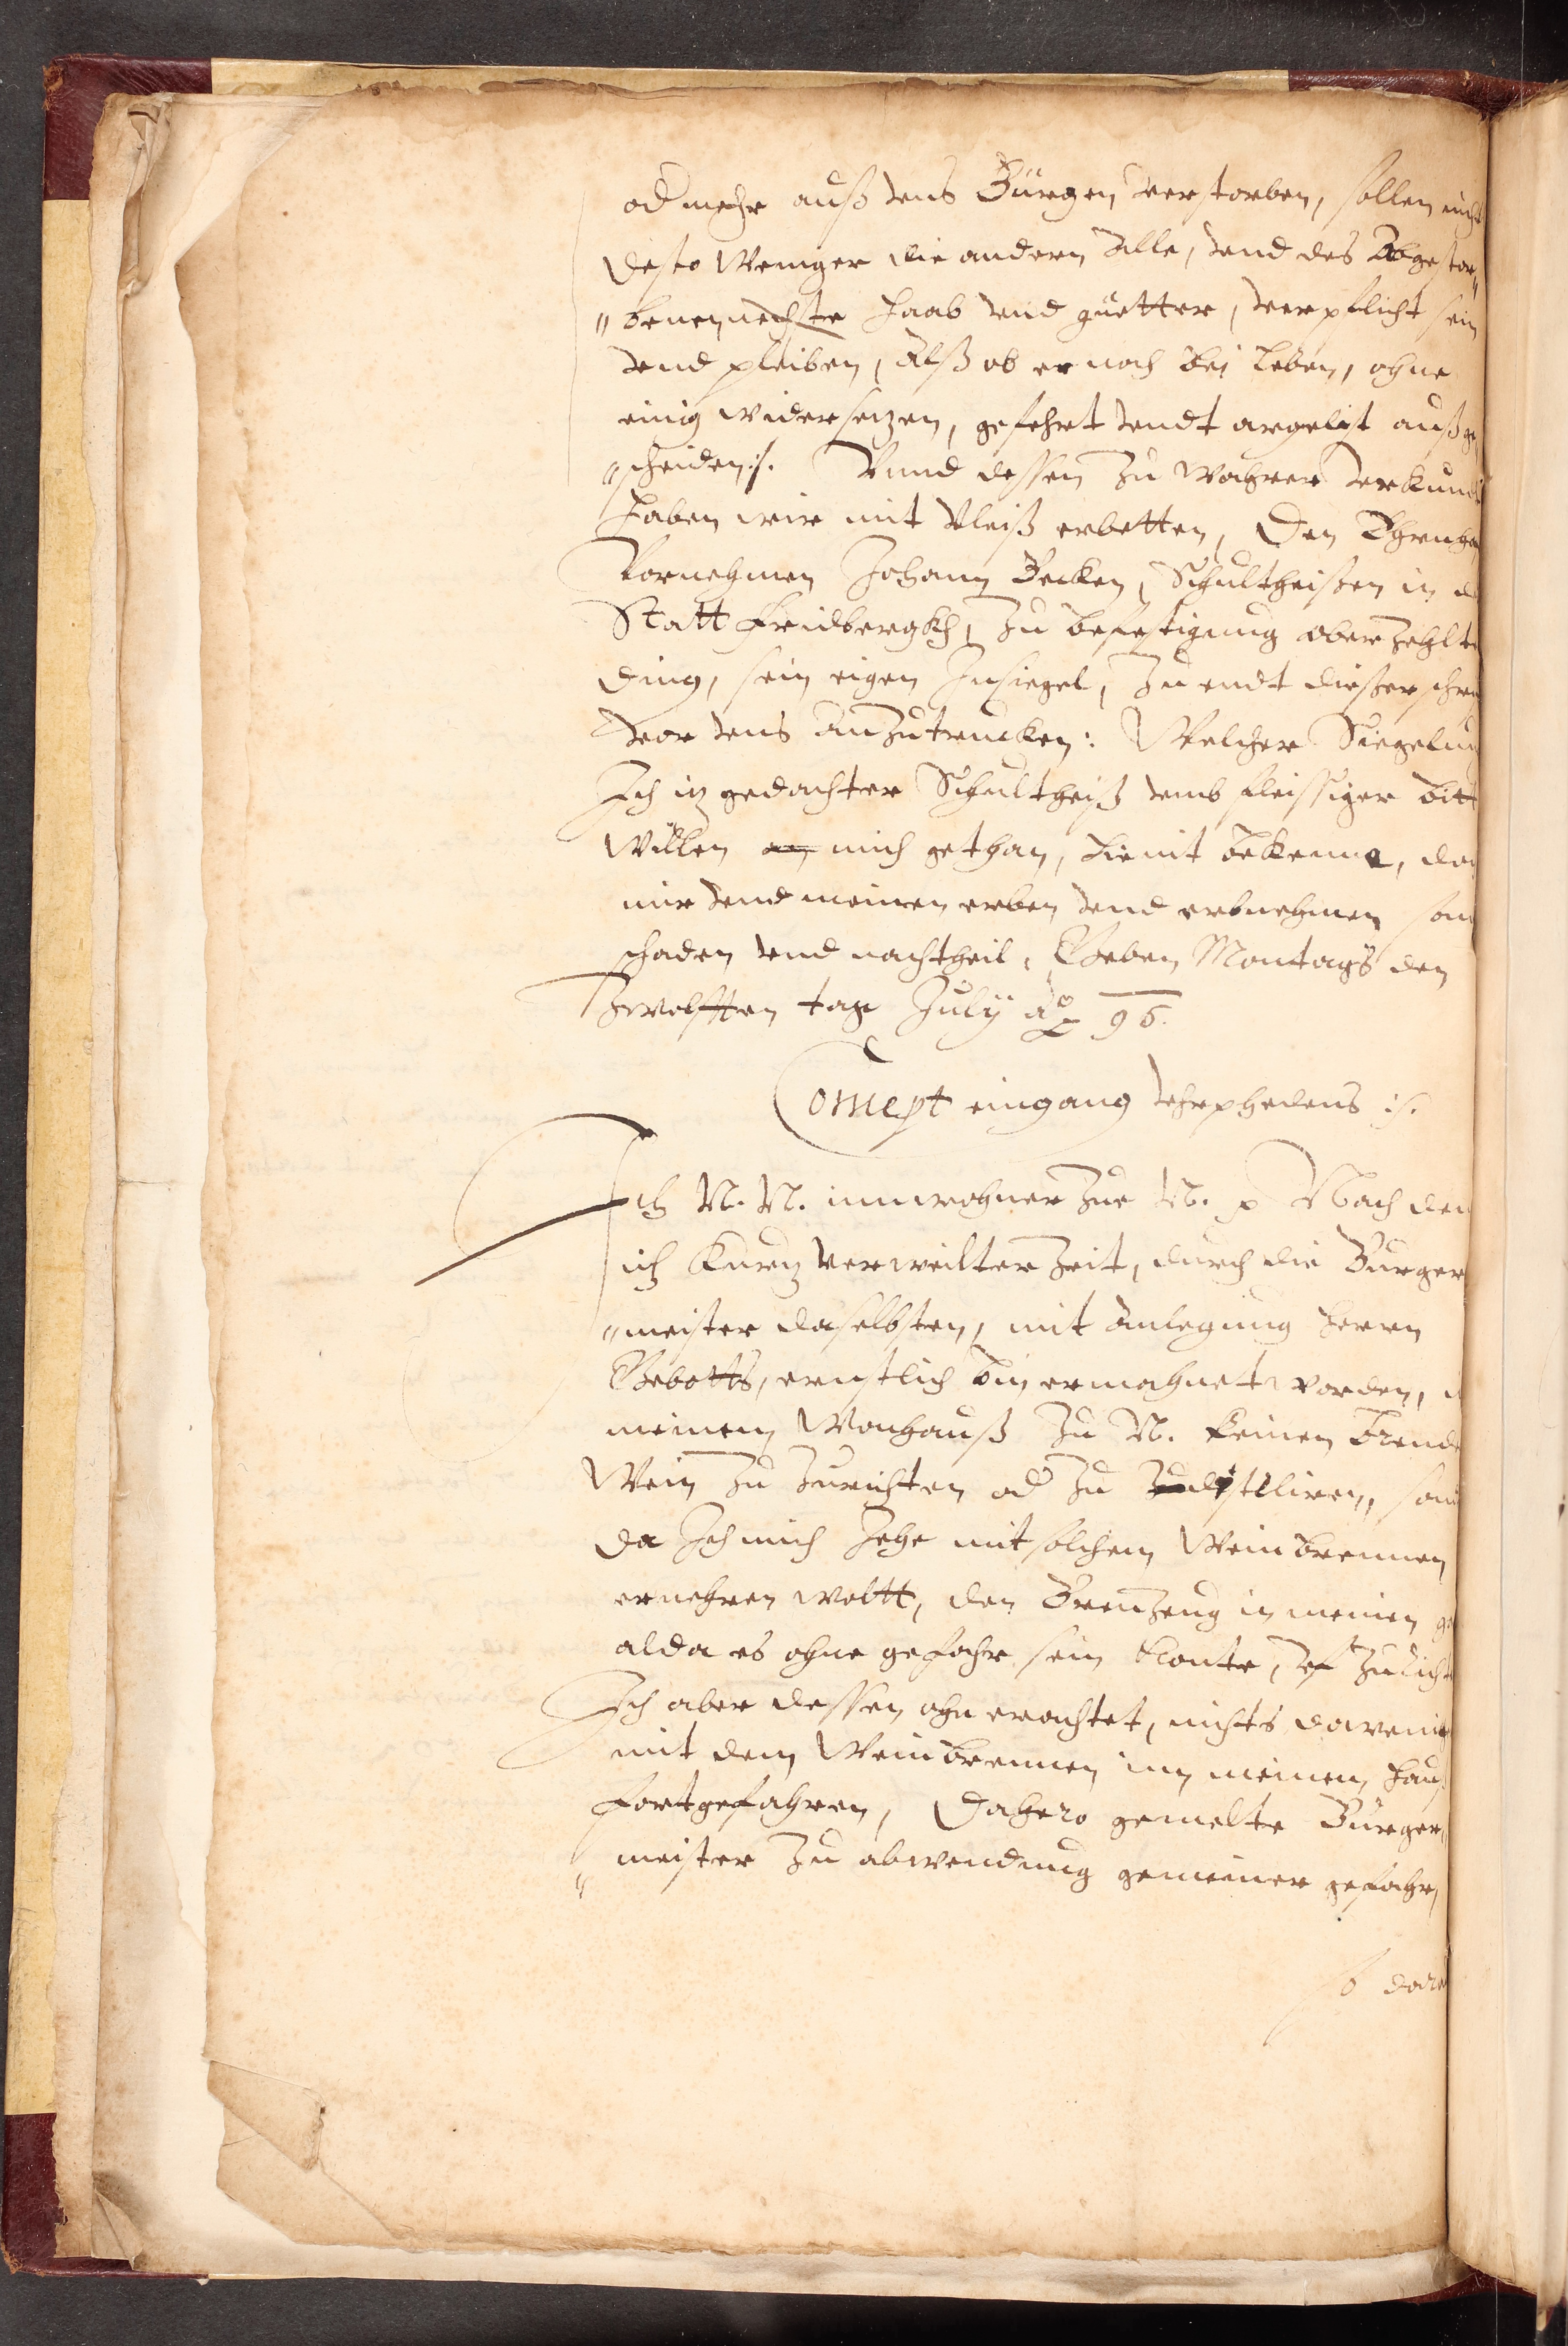 od mehr auß vns Bürgen verstorben, sollen nicht
desto weniger die andern alle, vnd des abgestor„
„benen nechste haab vnd guetter, verpflicht sein
vnd pleiben, alß ob er noch bei leben, ohne
einig widersetzen, gefehrt vndt argelist außge„
„scheiden :/. Vnnd dessen zu wahrer verkundt
haben wir mit vleiß erbetten, den
Vornehmen Johann Becken, Schultheißen in d
Statt Fridbergkh, zu befestigung oberzehlte
ding, sein eigen Insiegel, zu endt dießer schri
vor vns anzutrucken: Welcher Siegelung
Ich itz gedachter Schultheiß vmb fleissiger bitt
willen an mich gethan, hiemit bekenne, doch
mir vnd meinen erben vnd erbnehmen son
schaden vnd nachtheil, Geben Montags den
Zwolfften tag Julÿ ao p 96.
Concept eingang vhrphedens :/.
Ich N. N. innwohner zue N. p Nach dem
ich kurtz verweilter Zeit, durch die Burger
„meister daselbsten, mit anlegung herrn
Gebotts, ernstlich bin ermahnet worden, i
meinem Wonhauß zu N. keinen brendt
Wein zu zurichten od zu distiliren, son
da Ich mich Jehe mit solchem Weinbrennen
ernehren woltt, den Brenzeug in meinen ga
alda es ohne gefahr sein konte, vf zu richt
Ich aber dessen ohn erachtet, nichts dawenig
mit dem Weinbrennen inn meinem hauß
fortgefahren, Dahero gemelte Bürger„
„meister zu abwendung gemeiner gefahr,